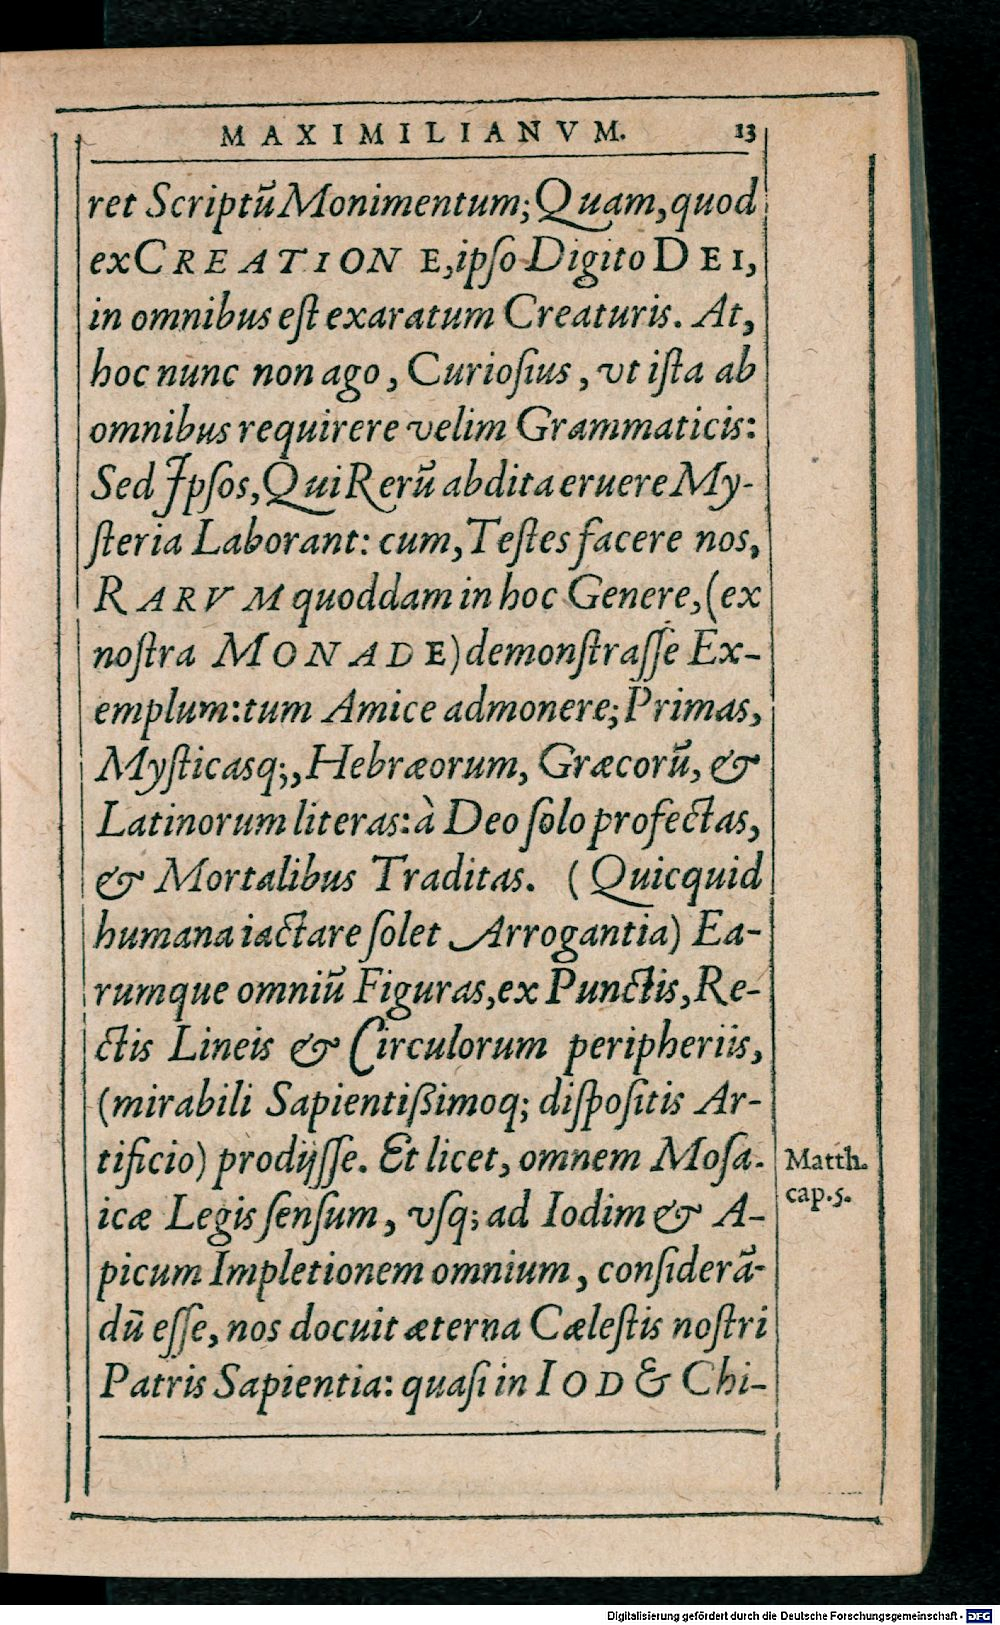 MAXIMILIANVM. 13
ret Scriptū Monimentum; Quam, quod
ex CREATIONE, ipſo Digito DEI,
in omnibus eſt exaratum Creaturis. At,
hoc nunc non ago, Curioſius, vt iſta ab
omnibus requirere velim Grammaticis:
Sed Ipſos, Qui Rerū abdita eruere My-
ſteria Laborant: cum, Teſtes facere nos,
RARVM quoddam in hoc Genere, (ex
noſtra MONADE) demonſtraſſe Ex-
emplum: tum Amice admonere; Primas,
Myſticasq;, Hebræorum, Græcorū, &
Latinorum literas: à Deo ſolo profectas,
& Mortalibus Traditas. (Quicquid
humana iactare ſolet Arrogantia) Ea-
rumque omniū Figuras, ex Punctis, Re-
ctis Lineis & Circulorum peripheriis,
(mirabili Sapientißimoq; diſpoſitis Ar-
tificio) prodijſſe. Et licet, omnem Moſa-
icæ Legis ſenſum, vſq; ad Iodim & A-
picum Impletionem omnium, conſiderā-
dū eſſe, nos docuit æterna Cæleſtis noſtri
Patris Sapientia: quaſi in IOD & Chi-
Matth.
cap. 5.
Digitalisierung gefördert durch die Deutsche Forschungsgemeinschaft - DFG